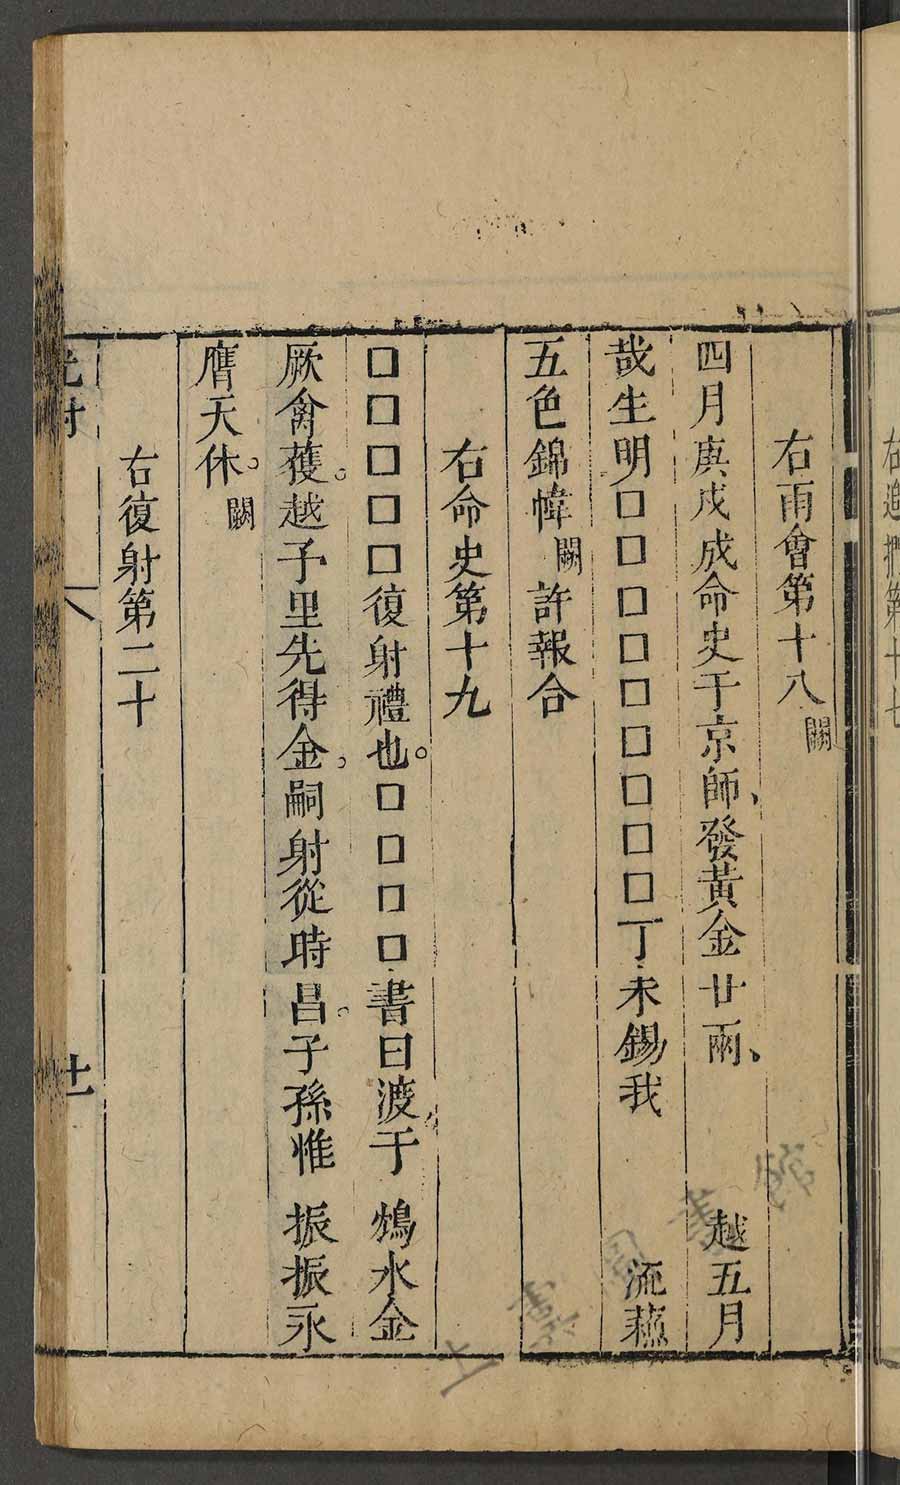 右追
第十七
右雨會第十八闕
四月庚戌成命史于京師、發黃金廿兩、越五月
哉生明□□□□□□□□□丁未錫我流蘓
五色錦幃闕許報合
右命史第十九
□□□□□復射禮也。□□□□書曰渡于鴆水金
厥禽蒦。越予里先得金、嗣射從時昌。子孫惟振振永
膺天休。闕
右復射第二十